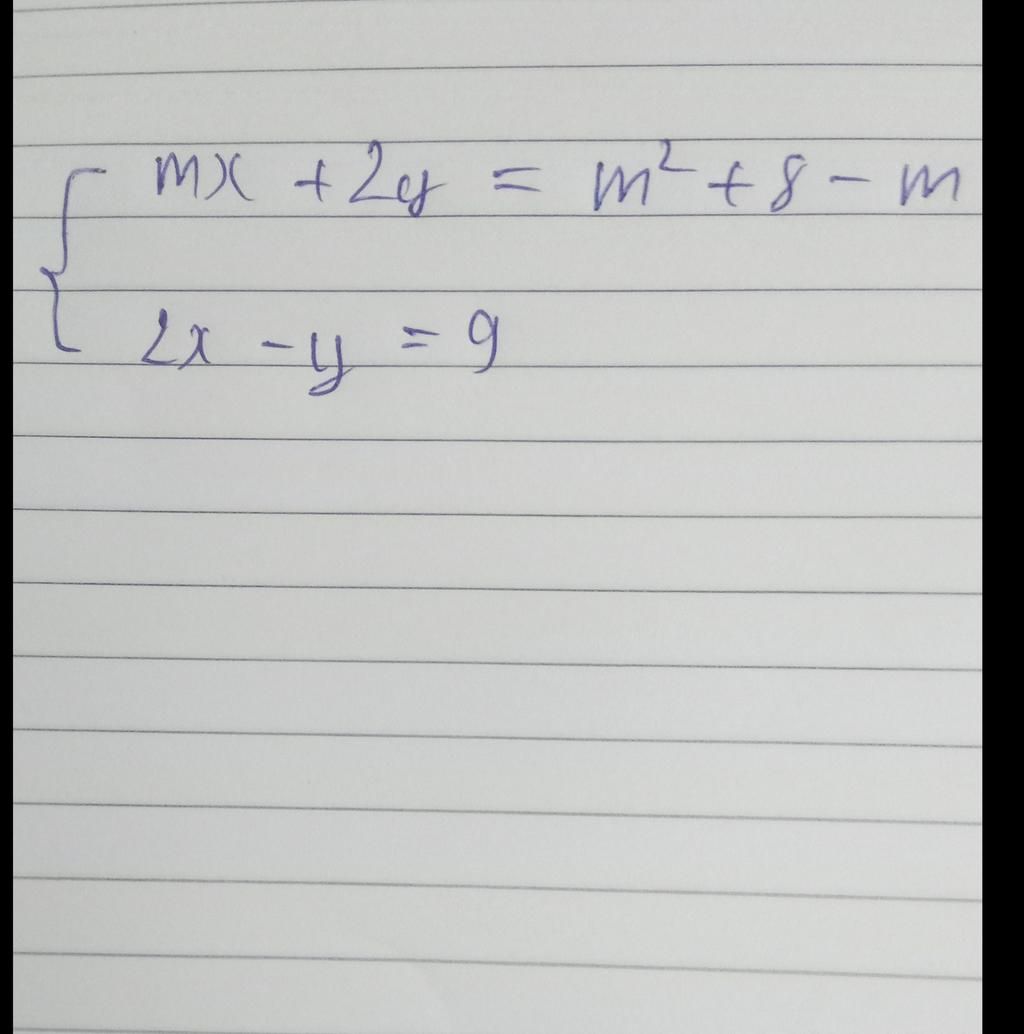 mx + 2y = m² + 8 - m
2x - y = 9